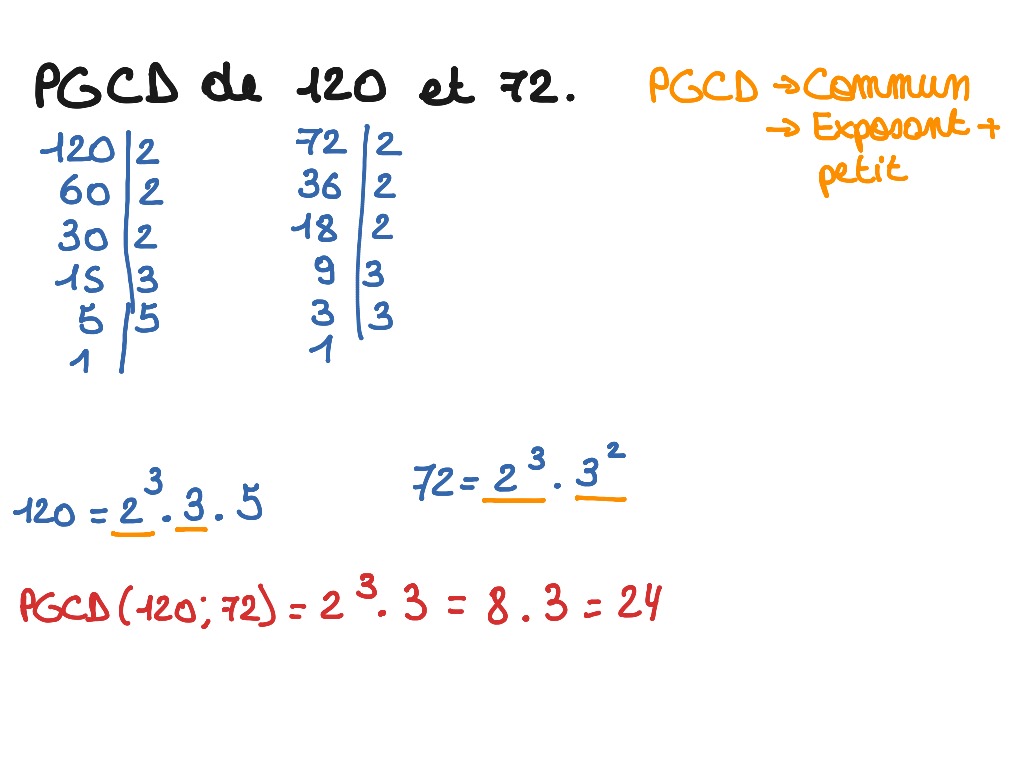 PGCD de 120 et 72.
PGCD → Commun
→ Exposant +
petit
120 | 2
60 | 2
30 | 2
15 | 3
5 | 5
1 |
72 | 2
36 | 2
18 | 2
9 | 3
3 | 3
1
120 = 2³ . 3 . 5
72 = 2³ . 3²
PGCD (120; 72) = 2³ . 3 = 8 . 3 = 24